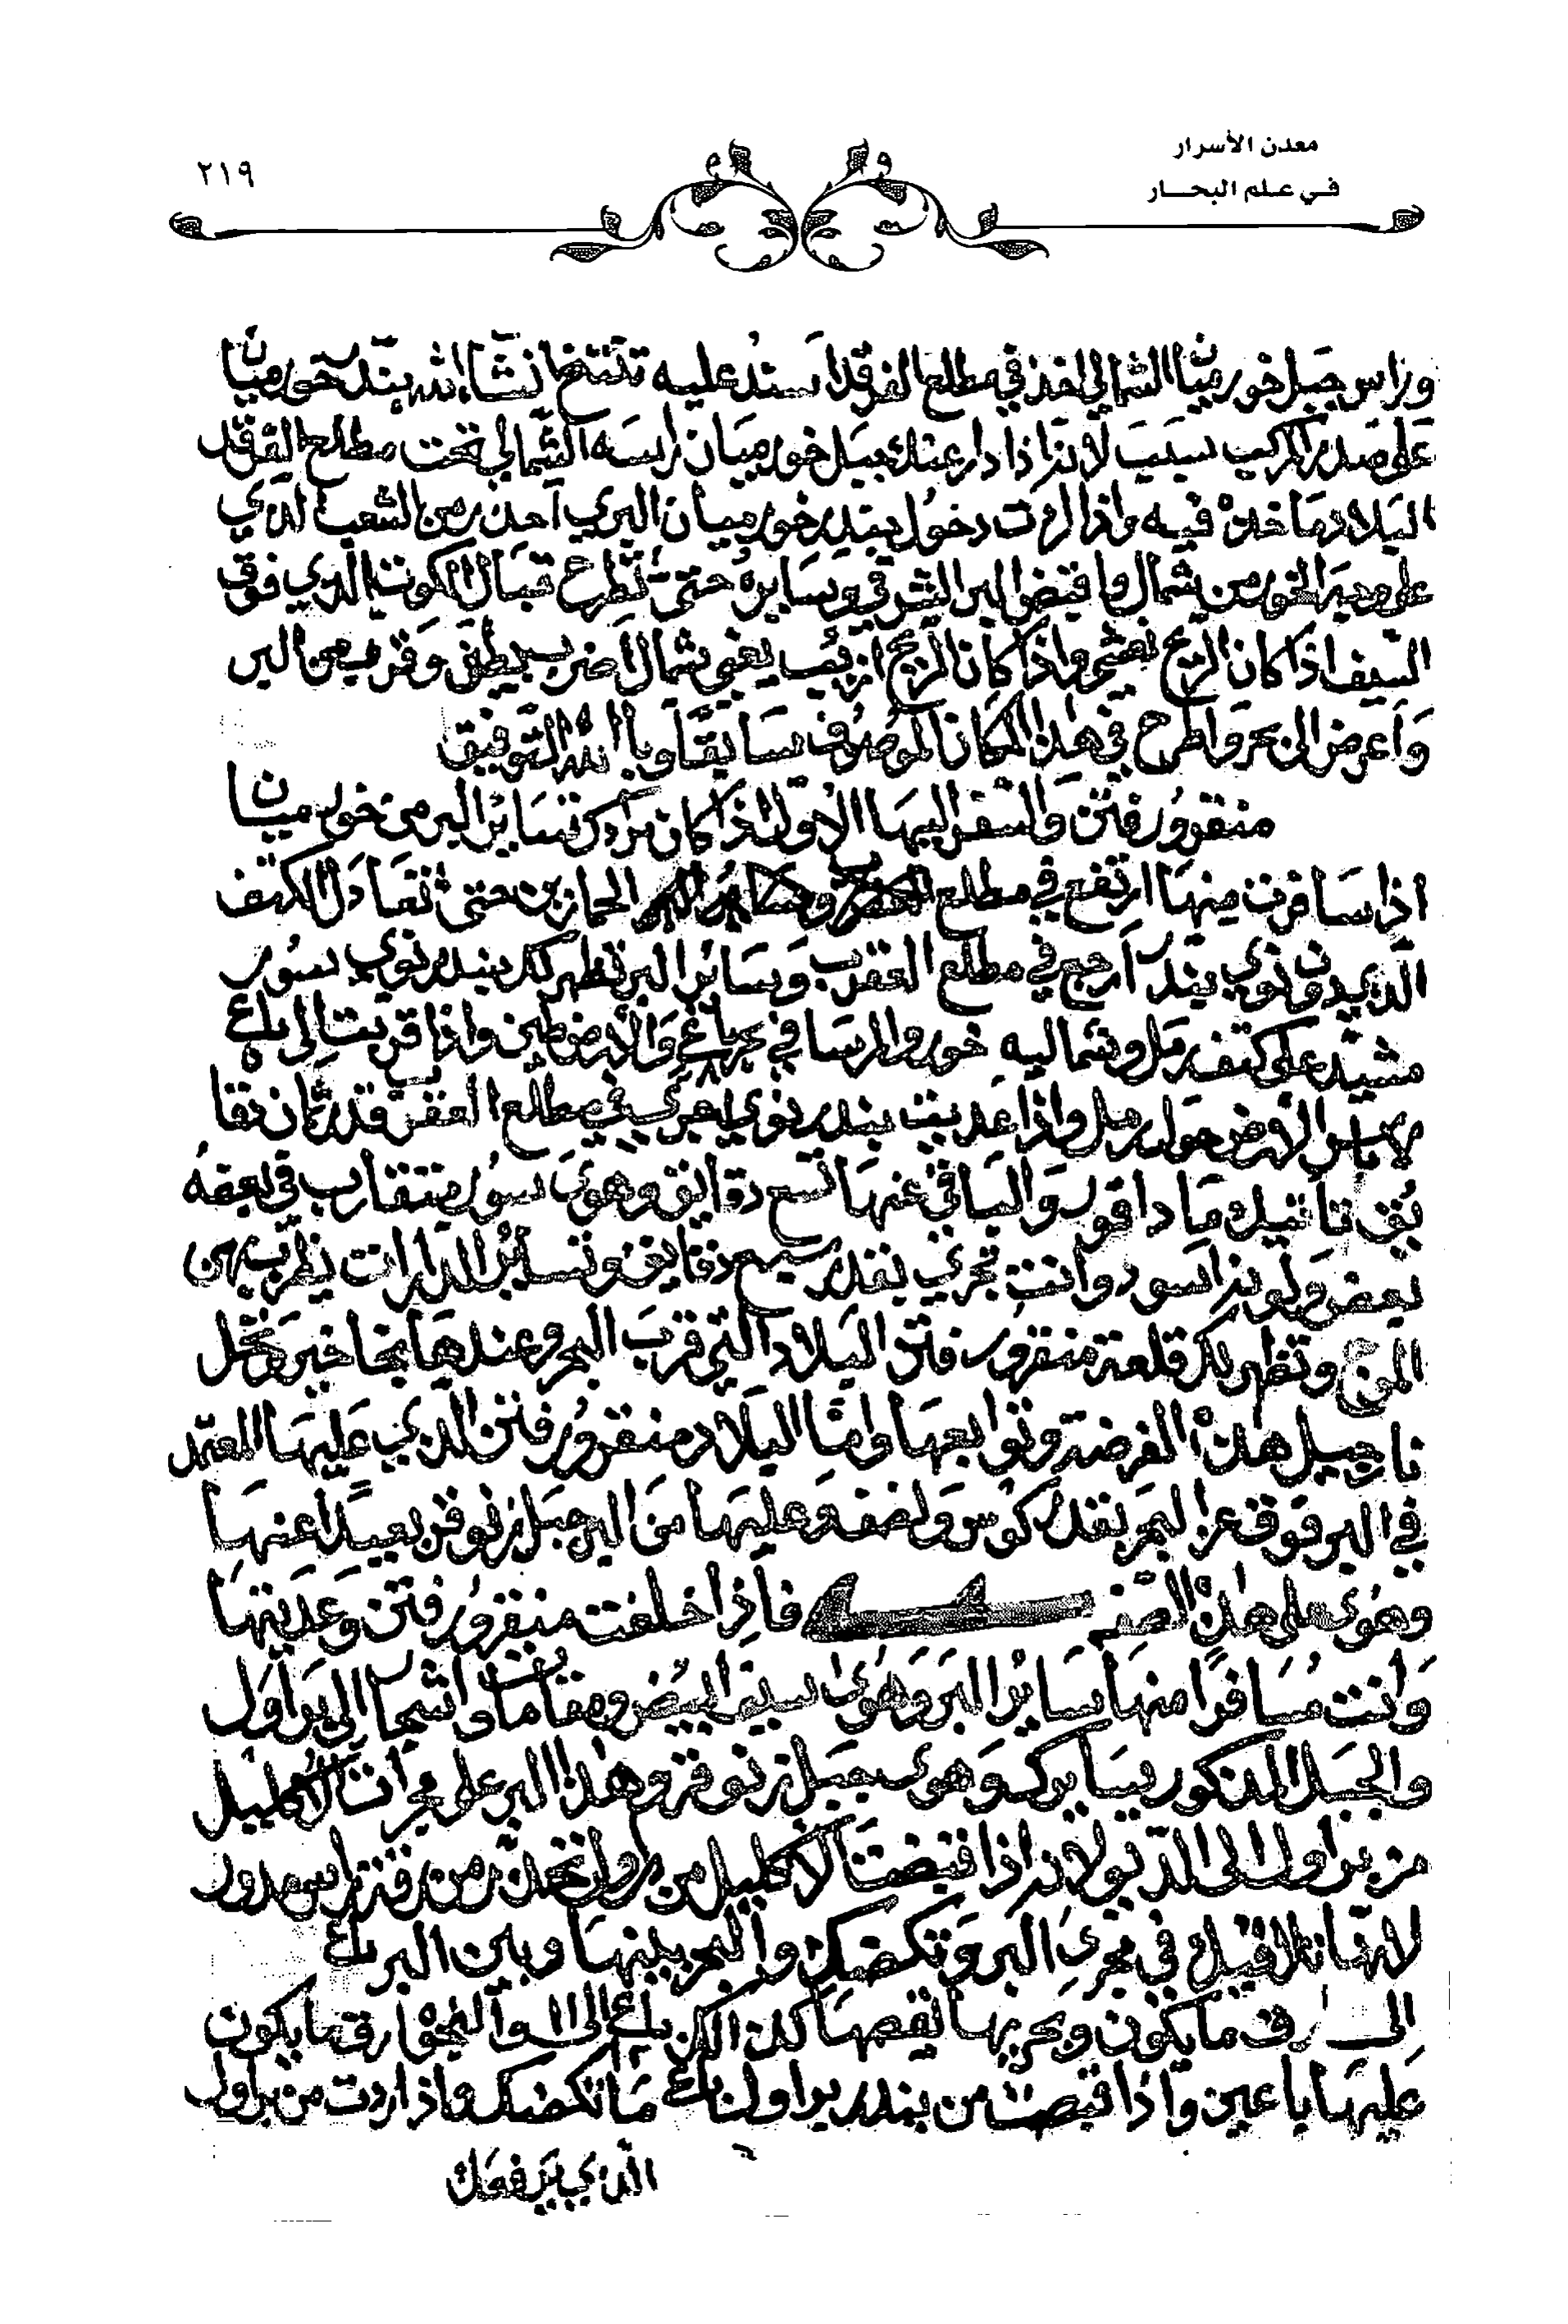 معدن الأسرار
في علم البحار
٢١٩
وراس جبل خور ميان الشمالي اخذ في مطلع الفرقد اسند عليه تنتخ انشاء الله بندر خور ميان
على صدر المركب سبب لانه اذا دار عنك جبل خور ميان راسه الشمالي تحت مطلع الفرقد
البلاد ما خذه فيه واذا اردت دخول بندر خور ميان البري احذر من الشعب الذي
على مدة الخور من شمال واقبض البر الشرقي وسايره حتى تطرح قبال الكوت الذي فوق
السيف اذا كان الريح نعشي واذا كان الريح ازيب يعني شمال اضرب بطق وقرب من البر
وأعرض الى بحر واطرح في هذا المكان الموصوف سابقا وبالله التوفيق
منقرور فتن والسفر اليها الاول اذا كان مرادك تساير البر من خور ميان
اذا سافرت منها ارتفع في مطلع الحمارين حتى تتعادل الكتف
الذي دون نوي بندر ارجع في مطلع العقرب وساير البر تظهر لك بندر نوي سور
مشيد على كتف رمل وشماليه خور والمرسا في بحر باع والأرض طين واذا قربت الى باع
لا باس الارض حول رمل واذا عديت بندر نوي اجري في مطلع العقرب قدر ثمان دقا
يق تأتيك ما داقور والباقي عنها تسع دقايق وهوى سور متقارب في بعضه
بعض ولونه اسود وانت تجري بقدر سبع دقايق وتساير الدارات نظربهن
الموج وتظهر لك قلعة منقرور فتن البلاد التي قرب البحر وعندها نجا خير ونخل
ناجيل هذه الفرضة وتوابعها واما البلاد منقرور فتن الذي عليها المعتمد
في البر فوق عن البحر بقدر كوس ونصف وعليها من البر جبل زنوقر بعيدا عنها
وهوى على هذه الصفه فأذا خلفت منقرور فتن وعديتها
وانت مسافرا منها ساير البر وهوى سيف ابيض ومقامات واشجار الى براول
والجبل المذكور يسايرك وهوى جبل زنوقر وهذا البر على مجرات الاكليل
من براول الى الديو لانه اذا قبضت الاكليل من براول تحذر من رقة راس مدور
لانها تلاقيك في مجرى البر وتكضك والبحر بينها وبين البر باع
الى ما يكون وبحريها نقصها كذلك باع الى والنجوا رق ما يكون
عليها باعين واذا قبصت من بندر براول باع ما تكضك واذا اردت من براول
الذي يرفعك